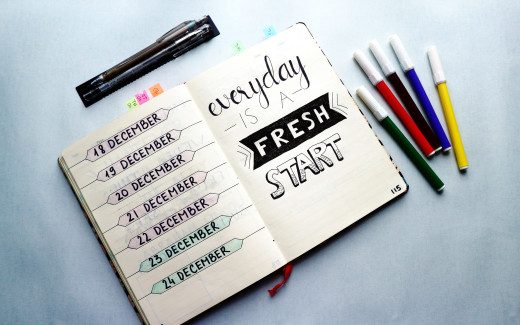 18 DECEMBER
19 DECEMBER
20 DECEMBER
21 DECEMBER
22 DECEMBER
23 DECEMBER
24 DECEMBER
everyday
IS A
FRESH
START
115